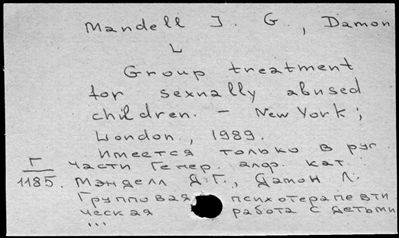 Mandell J. G., Damon
L
Group treatment
for sexually abused
children. - New York;
London, 1989.
Имеется только в рус.
части Генер. алф. кат.
Г
1185. Манделл Д.Г., Дамон Л.
Групповая психотерапевти
ческая работа с детьми
...